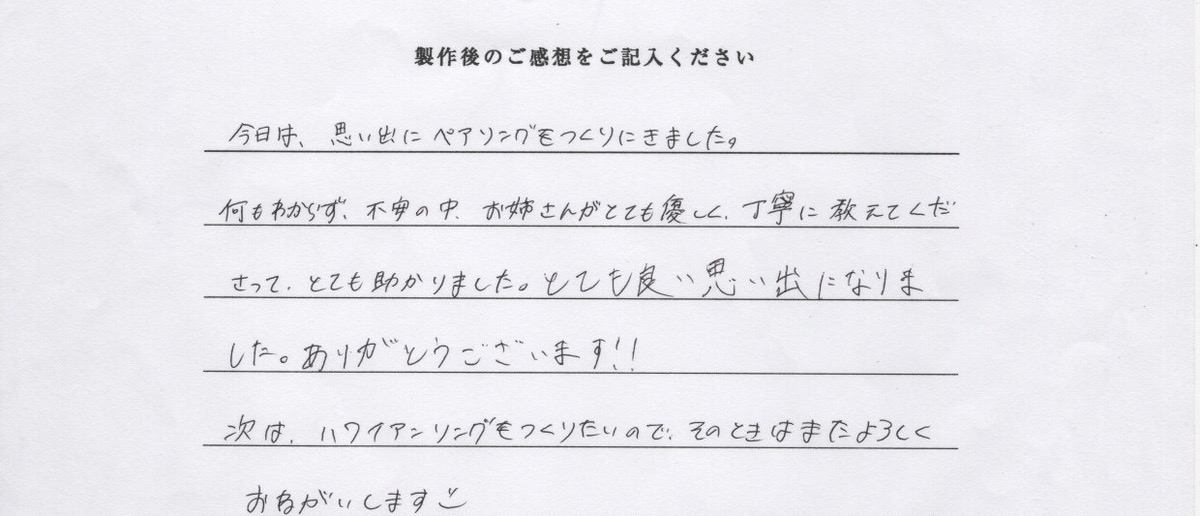 製作後のご感想をご記入ください
今日は、思い出にペアリングをつくりにきました。
何もわからず、不安の中、お姉さんがとても優しく、丁寧に教えてくだ
さって、とても助かりました。とても良い思い出になりま
した。ありがとうございます!!
次は、ハワイアンリングをつくりたいので、そのときはまたよろしく
おねがいします